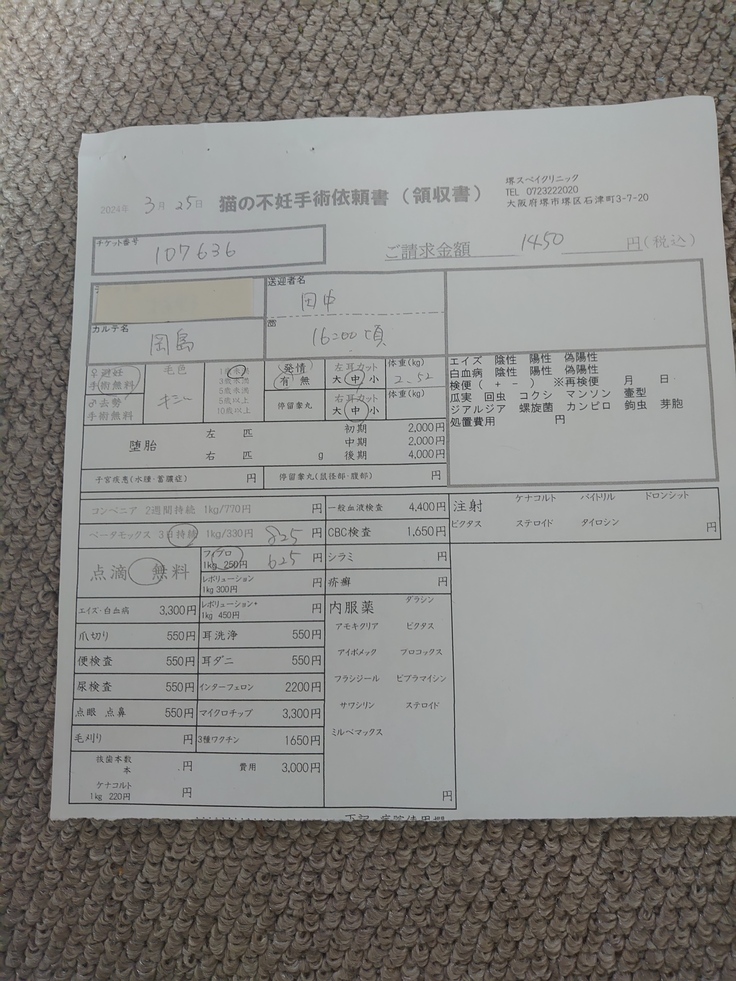 2024年 3月25日 猫の不妊手術依頼書（領収書）
堺スペイクリニック
TEL 0723222020
大阪府堺市堺区石津町3-7-20
チケット番号
107636
ご請求金額 1450 円(税込)
送迎者名
田中
カルテ名
岡島
16:00頃
♀避妊
手術無料
♂去勢
手術無料
毛色
キジ
3歳未満
5歳未満
5歳以上
10歳以上
発情
有 無
停留睾丸
左耳カット
大 中 小
右耳カット
大 中 小
体重(kg)
2.52
体重(kg)
エイズ 陰性 陽性 偽陽性
白血病 陰性 陽性 偽陽性
検便（ + - ） ※再検便 月 日
瓜実 回虫 コクシ マンソン 壷型
ジアルジア 螺旋菌 カンピロ 鉤虫 芽胞
処置費用 円
堕胎
左 匹
右 匹 g
初期 2,000円
中期 2,000円
後期 4,000円
子宮疾患(水腫・蓄膿症) 円
停留睾丸(鼠径部・腹部) 円
コンベニア 2週間持続 1kg/770円 円
ベータモックス 3日持続 1kg/330円 825 円
点滴 無料
1kg 250円 625 円
レボリューション
1kg 300円 円
エイズ・白血病 3,300円
レボリューション+
1kg 450円 円
爪切り 550円
耳洗浄 550円
便検査 550円
耳ダニ 550円
尿検査 550円
インターフェロン 2200円
点眼 点鼻 550円
マイクロチップ 3,300円
毛刈り 円
3種ワクチン 1650円
抜歯本数
本 円
費用 3,000円
ケナコルト
1kg 220円 円
一般血液検査 4,400円
CBC検査 1,650円
シラミ 円
疥癬 円
内服薬
ダラシン
アモキクリア ビクタス
アイボメック プロコックス
フラジール ビブラマイシン
サワシリン ステロイド
ミルベマックス
円
注射
ケナコルト バイトリル ドロンシット
ビクタス ステロイド タイロシン 円